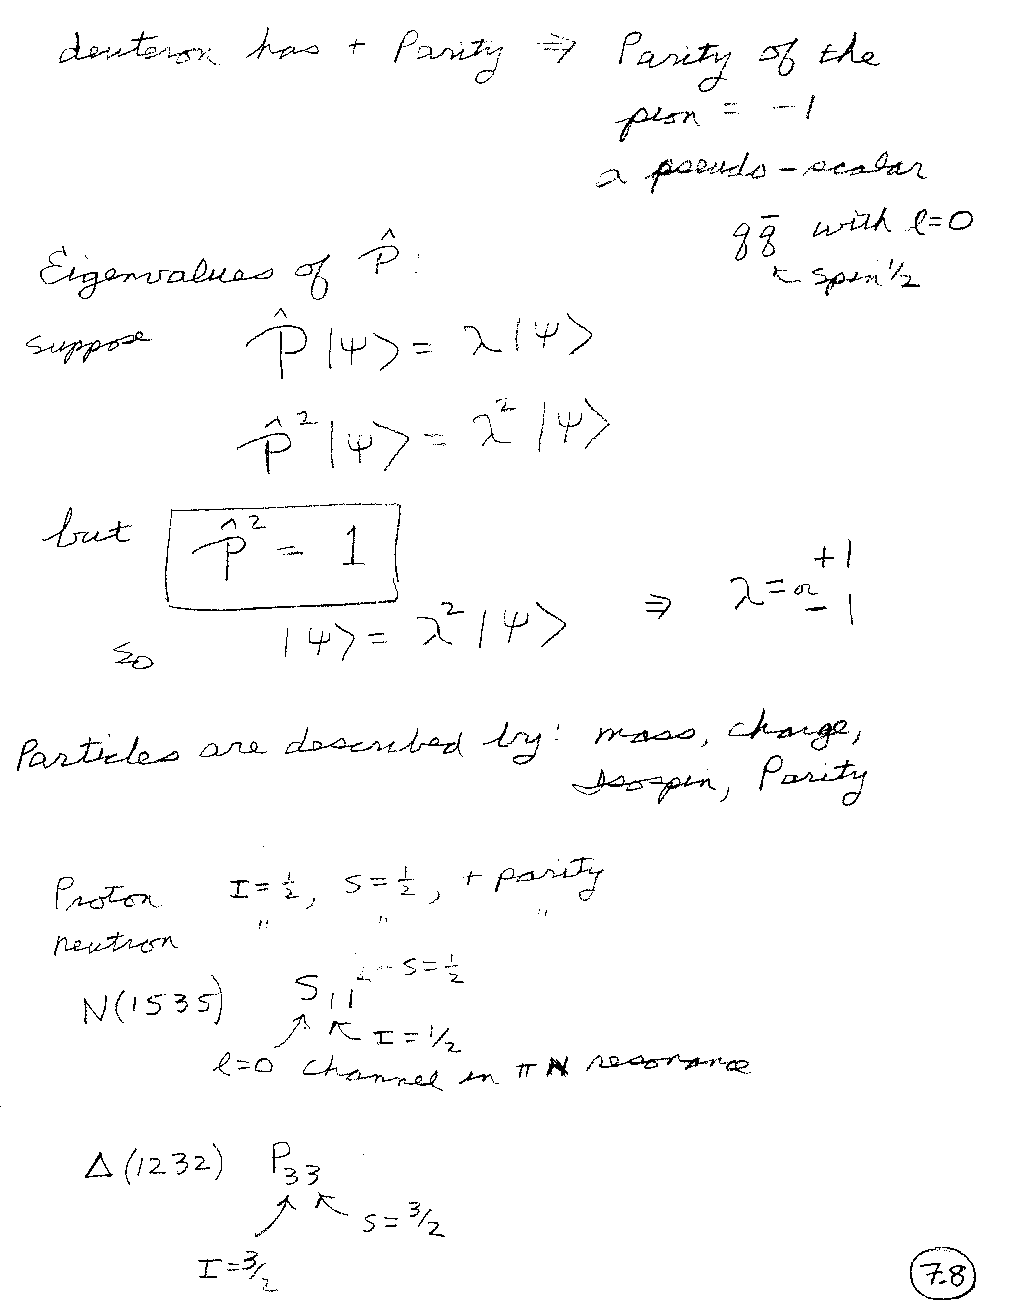 deuteron has + Parity ⇒ Parity of the
pion = -1
a pseudo-scalar
q q̄ with l=0
↖ spin 1/2
Eigenvalues of P̂:
suppose P̂|ψ> = λ|ψ>
P̂²|ψ> = λ²|ψ>
but P̂² = 1
so |ψ> = λ²|ψ> ⇒ λ = +1 or -1
Particles are described by: mass, charge,
Isospin, Parity
Proton I=1/2, S=1/2, + parity
neutron " " "
N(1535) S₁₁ ← S=1/2
↗ ↖ I=1/2
l=0 channel in π N resonance
Δ(1232) P₃₃
↗ ↖ S=3/2
I=3/2
7.8